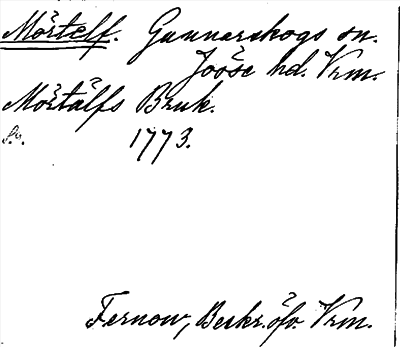 Mörtelf. Gunnarskogs sn.
Jösse hd. Vrm.
Mörtälfs Bruk.
1773.
Fernow, Beskr. öfv. Vrm.